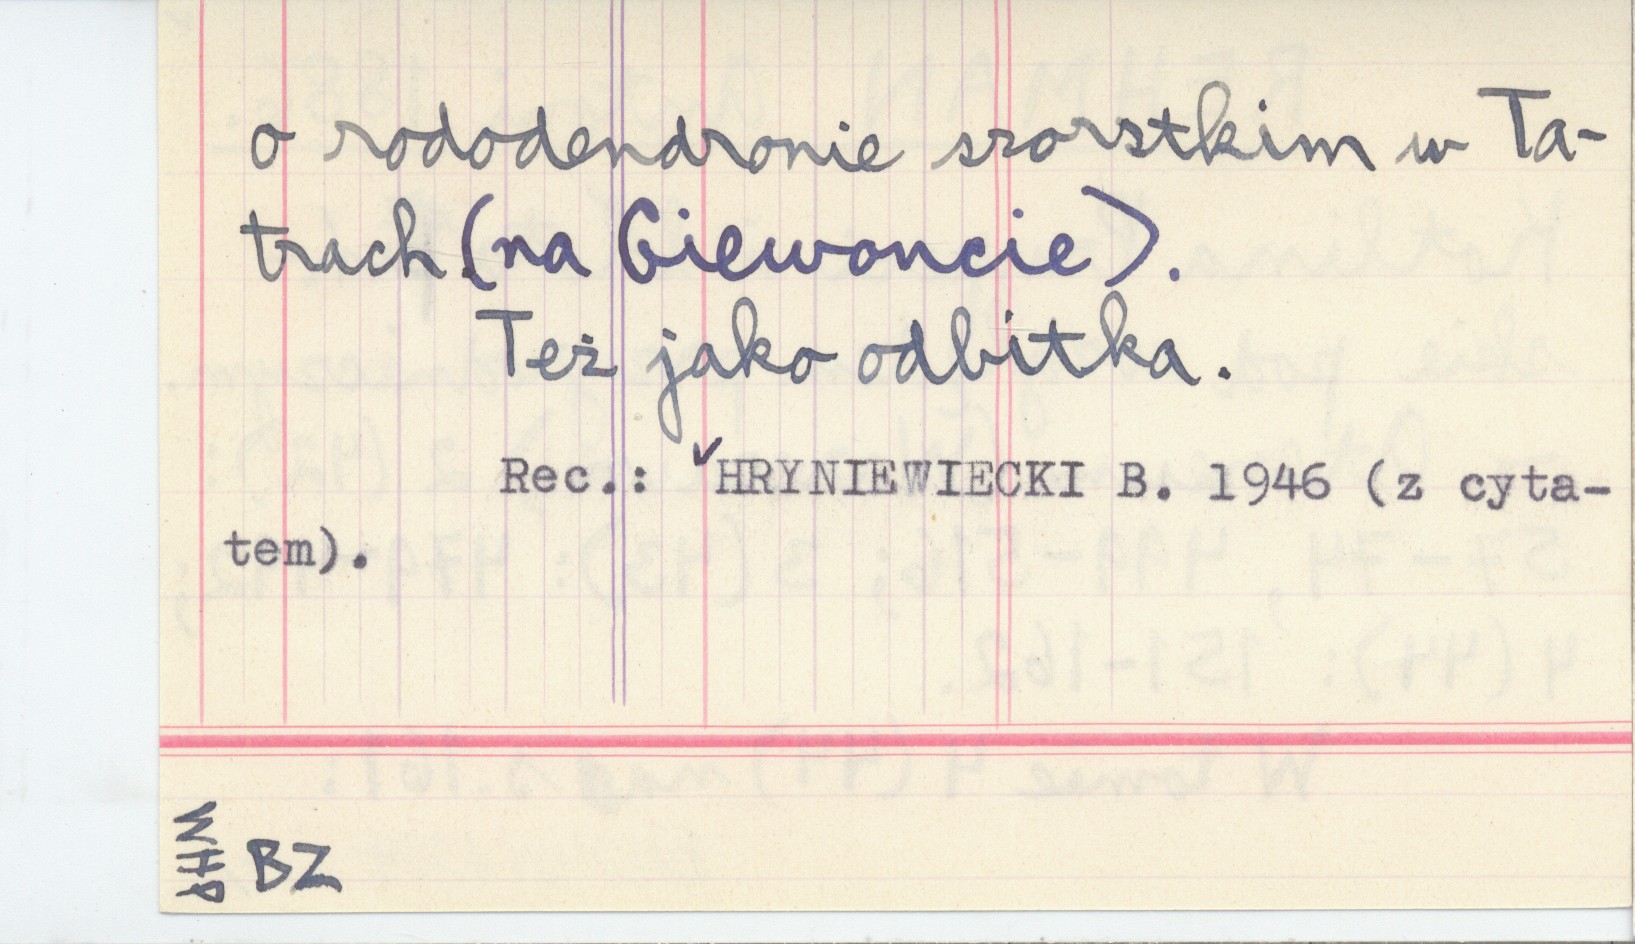 o rododendronie szorstkim w Ta-
trach.(na Giewoncie).
Też jako odbitka.
Rec.: ✓HRYNIEWIECKI B. 1946 (z cyta-
tem).
WHP
BZ